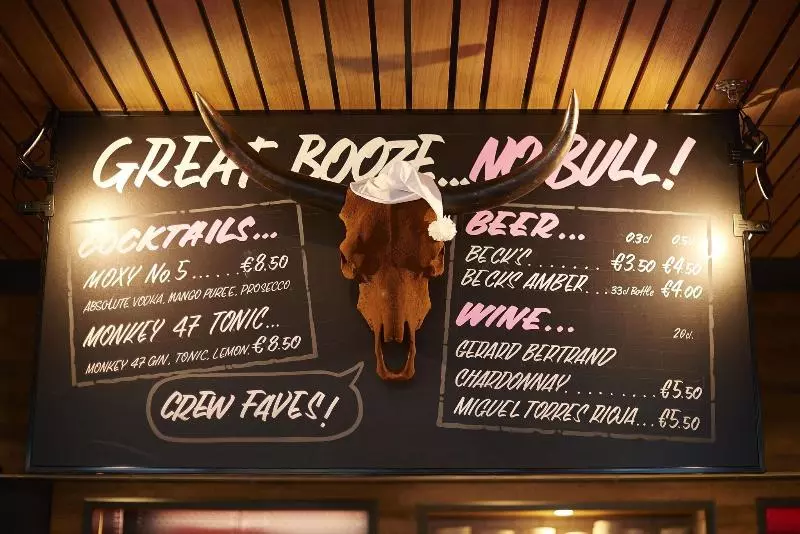 GREAT BOOZE... NO BULL!
COCKTAILS...
MOXY No.5......€8.50
ABSOLUTE VODKA, MANGO PUREE, PROSECCO
MONKEY 47 TONIC...
MONKEY 47 GIN, TONIC, LEMON. €8.50
CREW FAVES!
BEER... 0.3cl 0.5cl
BECK'S............€3.50 €4.50
BECKS AMBER....33cl Bottle €4.00
WINE... 20cl.
GERARD BERTRAND
CHARDONNAY............€5.50
MIGUEL TORRES RIOJA...€5.50